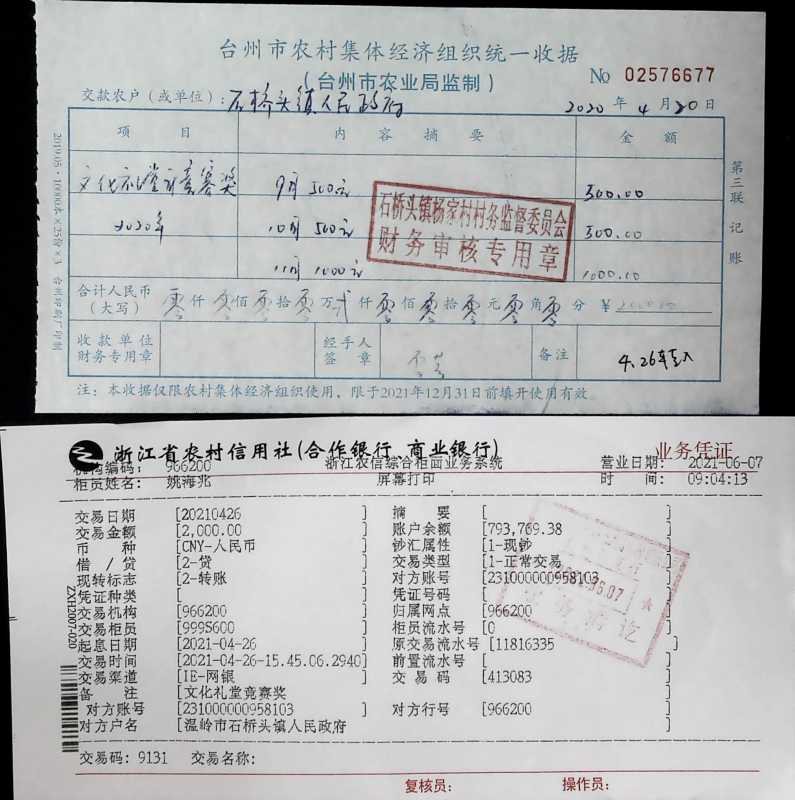 台州市农村集体经济组织统一收据
(台州市农业局监制)
No 02576677
交款农户（或单位）：石桥头镇人民政府 2020 年 4 月 20 日
项 目 内 容 摘 要 金 额
文化礼堂竞赛奖 9月 500元 500.00
2020年 10月 500元 500.00
11月 1000元 1000.00
石桥头镇杨家村村务监督委员会
财务审核专用章
合计人民币
（大写） 零 仟 零 佰 零 拾 零 万 贰 仟 零 佰 零 拾 零 元 零 角 零 分 ¥ 2000.00
收款单位
财务专用章
经手人
签 章
备注 4.26
注：本收据仅限农村集体经济组织使用，限于2021年12月31日前填开使用有效。
第三联 记账
浙江省农村信用社(合作银行 商业银行) 业务凭证
机构编码: 966200 浙江农信综合柜面业务系统 营业日期: 2021-06-07
柜员姓名: 姚海兆 屏幕打印 时 间: 09:04:13
交易日期 [20210426 ] 摘 要 [ ]
交易金额 [2,000.00 ] 账户余额 [793,769.38 ]
币 种 [CNY-人民币 ] 钞汇属性 [1-现钞 ]
借 / 贷 [2-贷 ] 交易类型 [1-正常交易 ]
现转标志 [2-转账 ] 对方账号 [231000000958103 ]
凭证种类 [ ] 凭证号码 [ ]
交易机构 [966200 ] 归属网点 [966200 ]
交易柜员 [999S600 ] 柜员流水号 [0 ]
起息日期 [2021-04-26 ] 原交易流水号 [11816335 ]
交易时间 [2021-04-26-15.45.06.2940] 前置流水号 [ ]
交易渠道 [IE-网银 ] 交 易 码 [413083 ]
备 注 [文化礼堂竞赛奖 ]
对方账号 [231000000958103 ] 对方行号 [966200 ]
对方户名 [温岭市石桥头镇人民政府 ]
交易码: 9131 交易名称:
复核员: 操作员:
ZXH2007-020